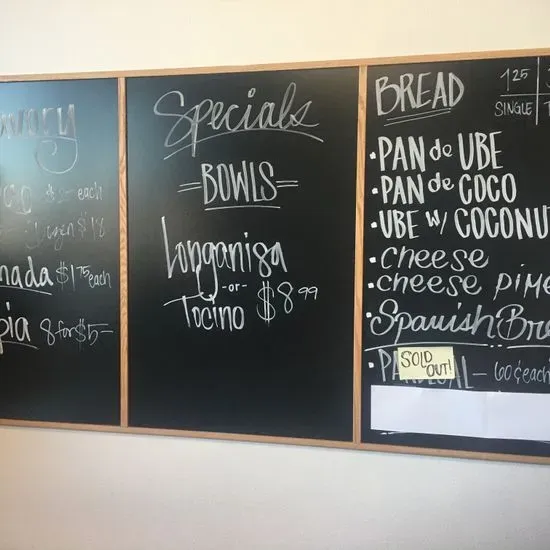 $2- each
Dozen $18
nada $1.75 each
pia 8 for $5-
Specials
=BOWLS=
Longanisa
-or-
Tocino $8.99
BREAD
1.25
SINGLE
• PAN de UBE
• PAN de COCO
• UBE W/ COCONUT
• cheese
• cheese PIME
• Spanish Bre
• PANDESAL — 60¢ each
SOLD OUT!